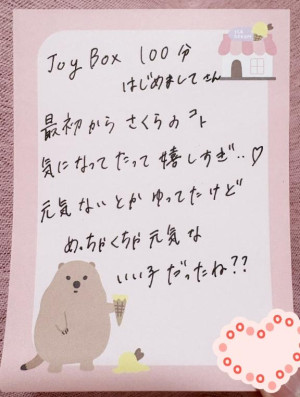 Joy Box 100分
はじめましてさん
最初から さくらのコト
気になってたって嬉しすぎ‥♡
元気ないとかゆってたけど
めっちゃくちゃ元気な
いい子だったね??